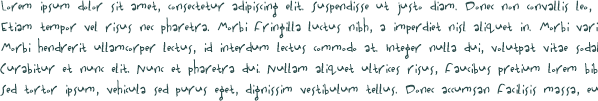 Lorem ipsum dolor sit amet, consectetur adipiscing elit. Suspendisse ut justo diam. Donec non convallis leo,
Etiam tempor vel risus nec pharetra. Morbi fringilla luctus nibh, a imperdiet nisl aliquet in. Morbi vari
Morbi hendrerit ullamcorper lectus, id interdum lectus commodo at. Integer nulla dui, volutpat vitae sodal
Curabitur et nunc elit. Nunc et pharetra dui. Nullam aliquet ultrices risus, faucibus pretium lorem bib
Sed tortor ipsum, vehicula sed purus eget, dignissim vestibulum tellus. Donec accumsan facilisis massa, eu